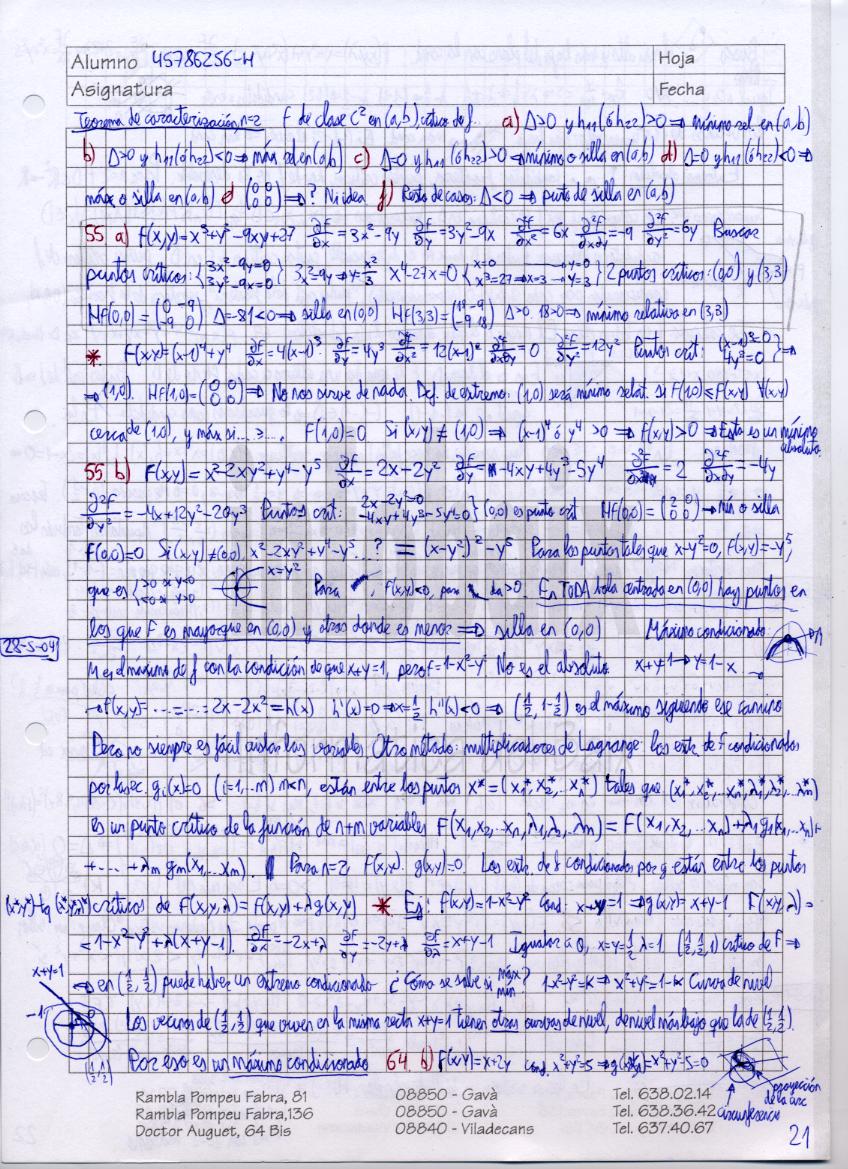 Alumno 45786256-H Hoja
Asignatura Fecha
Teorema de caracterización, n=2 f de clase C² en (a,b) crítico de f... a) Δ>0 y h₁₁(ó h₂₂)>0 ⇒ mínimo rel. en (a,b)
b) Δ>0 y h₁₁(ó h₂₂)<0 ⇒ máx rel en (a,b) c) Δ=0 y h₁₁(ó h₂₂)>0 ⇒ mínimo o silla en (a,b) d) Δ=0 y h₁₁(ó h₂₂)<0 ⇒
máx o silla en (a,b) e) (0 0 0 0) ⇒ ? Ni idea f) Resto de casos: Δ<0 ⇒ punto de silla en (a,b)
55 a) f(x,y)=x³+y³-9xy+27 ∂f/∂x=3x²-9y ∂f/∂y=3y²-9x ∂²f/∂x²=6x ∂²f/∂x∂y=-9 ∂²f/∂y²=6y Buscar
puntos críticos: {3x²-9y=0 3y²-9x=0} 3x²=9y → y=x²/3 x⁴-27x=0 {x=0 → y=0 x³=27 → x=3 → y=3} 2 puntos críticos: (0,0) y (3,3)
Hf(0,0)=(0 -9 -9 0) Δ=-81<0 ⇒ silla en (0,0) Hf(3,3)=(18 -9 -9 18) Δ>0, 18>0 ⇒ mínimo relativo en (3,3)
* f(x,y)=(x-1)⁴+y⁴ ∂f/∂x=4(x-1)³ ∂f/∂y=4y³ ∂²f/∂x²=12(x-1)² ∂²f/∂x∂y=0 ∂²f/∂y²=12y² Puntos crít: {(x-1)³=0 4y³=0} ⇒
⇒ (1,0). Hf(1,0)=(0 0 0 0) ⇒ No nos sirve de nada. Def. de extremo: (1,0) será mínimo relat. si f(1,0)≤f(x,y) ∀(x,y)
cerca de (1,0), y máx si ...≥.... f(1,0)=0 Si (x,y)≠(1,0) ⇒ (x-1)⁴ ó y⁴>0 ⇒ f(x,y)>0 ⇒ Esto es un mínimo absoluto.
55. b) f(x,y)=x²-2xy²+y⁴-y⁵ ∂f/∂x=2x-2y² ∂f/∂y=-4xy+4y³-5y⁴ ∂²f/∂x²=2 ∂²f/∂x∂y=-4y
∂²f/∂y²=-4x+12y²-20y³ Puntos crít: {2x-2y²=0 -4xy+4y³-5y⁴=0} (0,0) es punto crít Hf(0,0)=(2 0 0 0) → mín o silla
f(0,0)=0 Si (x,y)≠(0,0), x²-2xy²+y⁴-y⁵...? = (x-y²)²-y⁵ Para los puntos tales que x-y²=0, f(x,y)=-y⁵,
que es {>0 si y<0 <0 si y>0 x=y² Para , f(x,y)<0, para da >0. En TODA bola centrada en (0,0) hay puntos en
los que f es mayor que en (0,0) y otros donde es menor ⇒ silla en (0,0) Máximo condicionado M
28-5-04
M es el máximo de f con la condición de que x+y=1, pero f=1-x²-y². No es el absoluto. x+y=1 → y=1-x →
→ f(x,y)=......=...: 2x-2x²=h(x) h'(x)=0 ⇒ x=1/2 h''(x)<0 ⇒ (1/2, 1-1/2) es el máximo siguiendo ese camino
Pero no siempre es fácil aislar las variables Otro método: multiplicadores de Lagrange: los extr. de f condicionados
por las ec. gᵢ(x)=0 (i=1,..m) m<n, están entre los puntos x*=(x₁*,x₂*,...xₙ*) tales que (x₁*,...xₙ*,λ₁*,λ₂*,...λₘ*)
es un punto crítico de la función de n+m variables F(x₁,x₂,...xₙ,λ₁,λ₂,...λₘ)=f(x₁,x₂,...xₙ)+λ₁g₁(x₁,...xₙ)+
+...+λₘgₘ(x₁,...xₘ). Para n=2, f(x,y). g(x,y)=0. Los extr. de f condicionados por g están entre los puntos
(x*,y*) tq (x*,y*,λ*) críticos de F(x,y,λ)=f(x,y)+λg(x,y) * Ej: f(x,y)=1-x²-y² Cond: x+y=1 ⇒ g(x,y)=x+y-1 F(x,y,λ)=
=1-x²-y²+λ(x+y-1). ∂F/∂x=-2x+λ ∂F/∂y=-2y+λ ∂F/∂λ=x+y-1 Igualar a 0, x=y=1/2 λ=1. (1/2,1/2,1) crítico de F ⇒
x+y=1
⇒ en (1/2,1/2) puede haber un extremo condicionado ¿Cómo se sabe si máx mín? 1-x²-y²=K ⇒ x²+y²=1-K Curva de nivel
-1
Los vecinos de (1/2,1/2) que viven en la misma recta x+y=1 tienen otras curvas de nivel, de nivel más bajo que la de (1/2,1/2).
(1/2,1/2)
Por eso es un máximo condicionado 64. b) f(x,y)=x+2y cond. x²+y²=5 ⇒ g(x,y)=x²+y²-5=0
proyección de la circ
circunferencia
Rambla Pompeu Fabra, 81 08850 - Gavà Tel. 638.02.14
Rambla Pompeu Fabra,136 08850 - Gavà Tel. 638.36.42
Doctor Auguet, 64 Bis 08840 - Viladecans Tel. 637.40.67
21